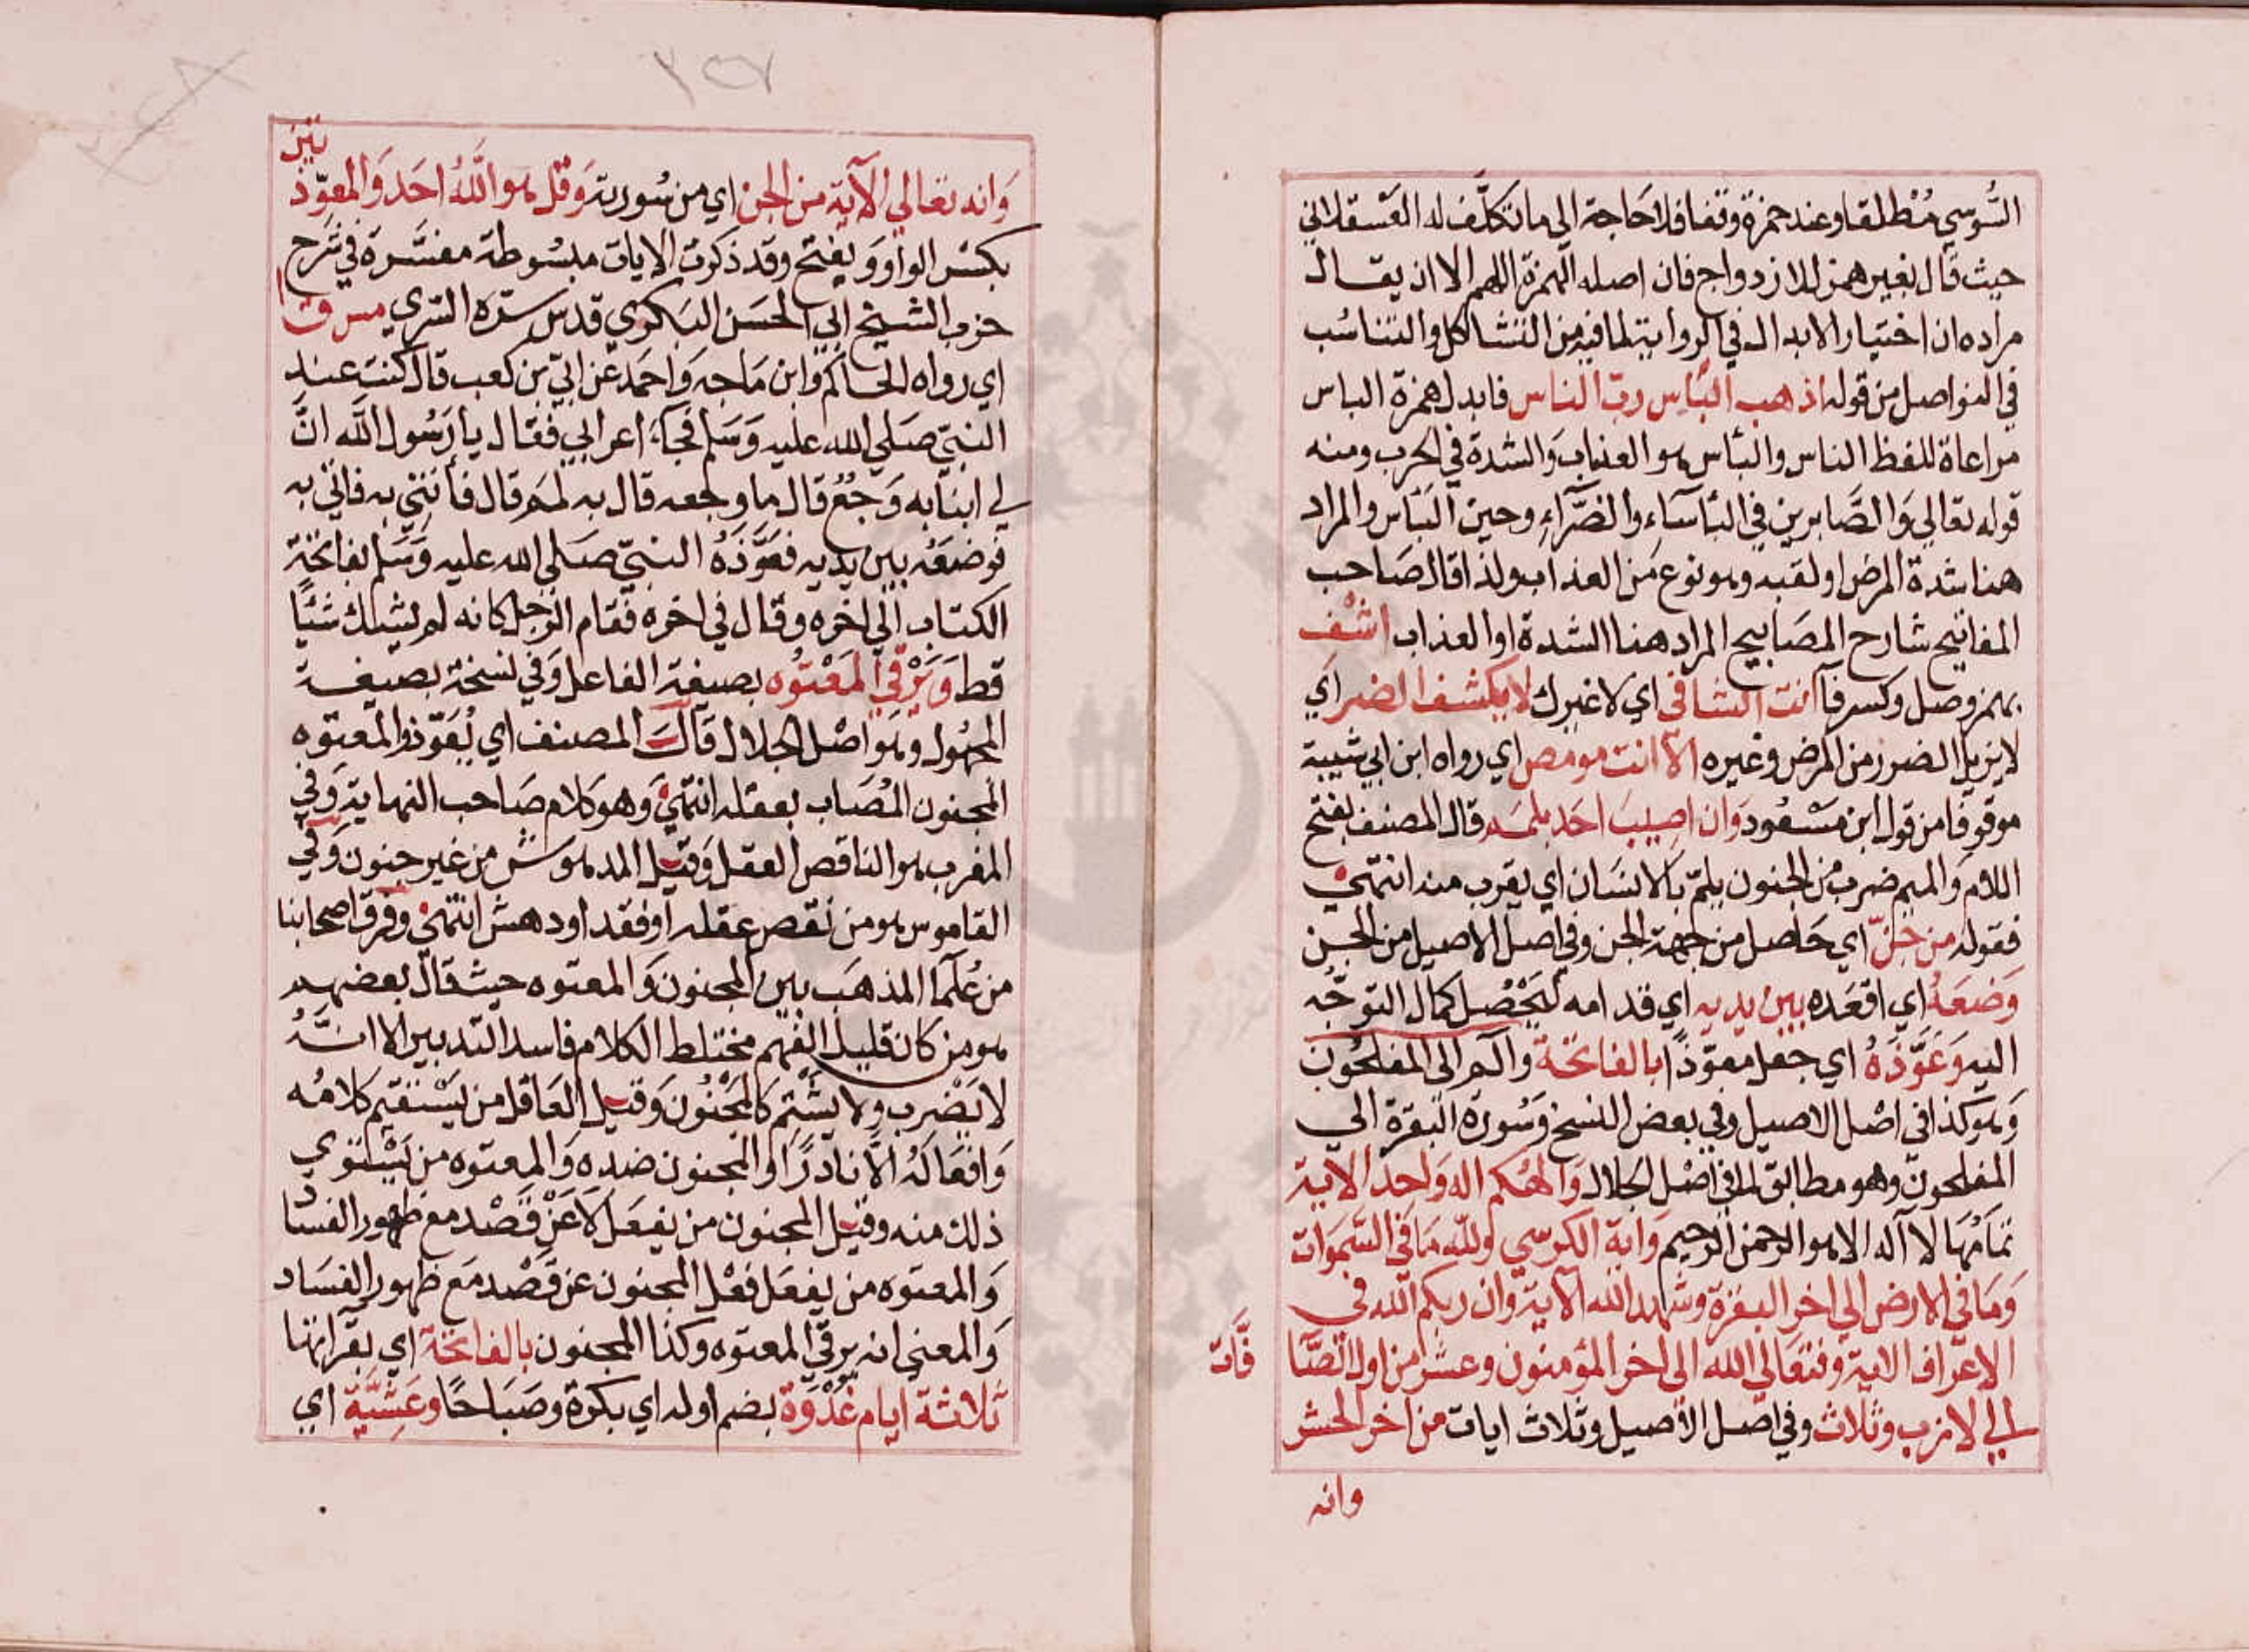 السُّوسي مُطلقا وعند حمزة وقفا فلا حَاجة الى ما تكلّف له العَسقلاني
حيث قال بغير همز للازدواج فان اصله الهمزة اللهم الا ان يقال
مراده ان اختيار الابدال في الرواية لما فيه من التشاكل والتناسُب
في الفواصل من قوله اذهب البأس ربّ الناس فابدل همزة الباس
مراعاة للفظ الناس والبأس هو العذاب وَالشدة في الحرب ومنه
قوله تعالى وَالصَّابرين في البأسَاء والضَّرَّاءِ وحين البَأس والمراد
هنا شدة المرض او لقبه وهو نوع مَن العذاب ولذا قال صَاحب
المفاتيح شارح المصَابيح المراد هنا الشدة او العذاب اشْفِ
بهمز وصل وكسر فآ انت الشافي اي لا غيرك لا يكشف الضر اي
لا يزيل الضرر من المرض وغيره الّا انت مو مص اي رواه ابن ابي شيبة
موقوفا من قول ابن مَسْعُود وَان اصِيبَ احَد بلمَمٍ قال المصنف بفتح
اللام وَالميم ضرب من الجنون يلمّ بالانسَان اي يقرب منه انتهى
فقوله من جنّ اي حَاصل من جهة الجن وفي اصل الاصيل من الجن
وَضعَهُ اي اقعَده بين يديه اي قدامه ليَحْصُل كمال التوجّه
اليه وَعَوَّذَهُ اي جعل معوّذاً بالفاتحة والٓم الى المفلحُون
وَهو كذا في اصْل الاصيل وفي بعض النسخ وَسُورة البقرة الى
المفلحونَ وهو مطابق لما في اصْل الجلال وَالهُكم اله وَاحد الاية
تمَامُهَا لا آله الا هو الرحمن الرحيم وَاية الكرسي وللّه مَا في السَّمَوَات
وَمَا في الارض الى اخر البقرة وشهد الله الاية وان ربكم الله في
الاعراف الاية وفتعَالى الله الى اخر المؤمنون وعشر من اول الصَّا
فَّات
الى لازب وثلاث وفي اصل الاصيل وثلاث ايات من اخر الحشر
وانه
٢٥٧
وَانه تعَالي الآية من الجن اي من سُورته وَقل هو اللَّهُ احَد وَالمعوّذ
تين
بكسْر الواو وَيفتح وقد ذكرت الايات مبسُوطة مفسَّرة في شَرح
حزب الشيخ ابي الحسَن البَكري قدس سرّه السّري مس ق ا
اي رواه الحاكم وابن مَاجه وَاحمَد عن ابيّ بن كعب قال كنت عند
النبيّ صَلى الله عليه وَسَلم فجآءَ اعرابي فقال يا رَسُول اللّه انَّ
لي ابنا به وَجعٌ قال ما وجعه قال به لمَم قال فأتني به فاتي به
فوضعَه بين يديه فعَوَّذَهُ النبيّ صَلى الله عليه وَسَلم بفاتحة
الكتاب الي اخره وقال في اخره فقام الرّجل كانه لم يشك شئًا
قط وَيَرْقي المَعْتُوه بصيغة الفاعل وَفي نسخة بصيغة
المجهُول وهو اصْل الجلال قالَ المصنف اي يُعَوّذ والمعتوه
المجنون المُصَاب بعقله انتهي وَهو كلام صَاحب النهاية وَفي
المغرب هو الناقص العقل وَقيل المدهوش من غير جنون وَفي
القاموس هو من نقص عقله او فقد او دهش انتهي وفرق اصحابنا
من عُلمآ المذهَب بين المجنون وَالمعتوه حيث قال بعضهم
هو من كان قليل الفهم مختلط الكلام فاسد التدبير الا انَّه
لا يَضْرب ولا يشتم كَالمَجْنُون وَقيل العَاقل من يَسْتقيم كلامُه
وَافعَالهُ الَّا نادرًا والمجنون ضده وَالمعتوه من يَسْتوي
ذلك منه وقيل المجنون من يفعَل لَا عَنْ قَصْد مع ظهور الفسَا
د
وَالمعتوه من يفعَل فعْل المجنون عن قَصْد مَع ظهور الفسَاد
وَالمعني انه يرقي المعتوه وكذا المجنون بالفاتحة اي بقرآتها
ثلاثة ايام غُدْوَةً بضم اوله اي بكرة وصَبَاحًا وعَشِيَّةً اي